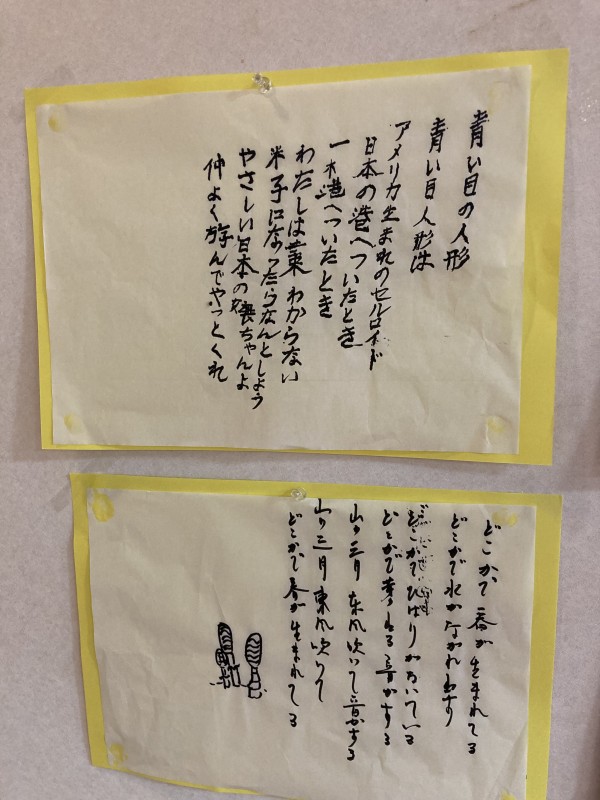 青い目の人形
青い目人形は
アメリカ生まれのセルロイド
日本の港へついたとき
一木港へついたとき
わたしは葉わからない
米子になったらなんとしよう
やさしい日本の嬢ちゃんよ
仲よく遊んでやっとくれ
どこかで春が生まれてる
どこかで水がながれ出す
どこかでひばりがないている
どこかで芽の出る音がする
山の三月東風吹いて音がする
山の三月東風吹いて
どこかで春が生まれてる